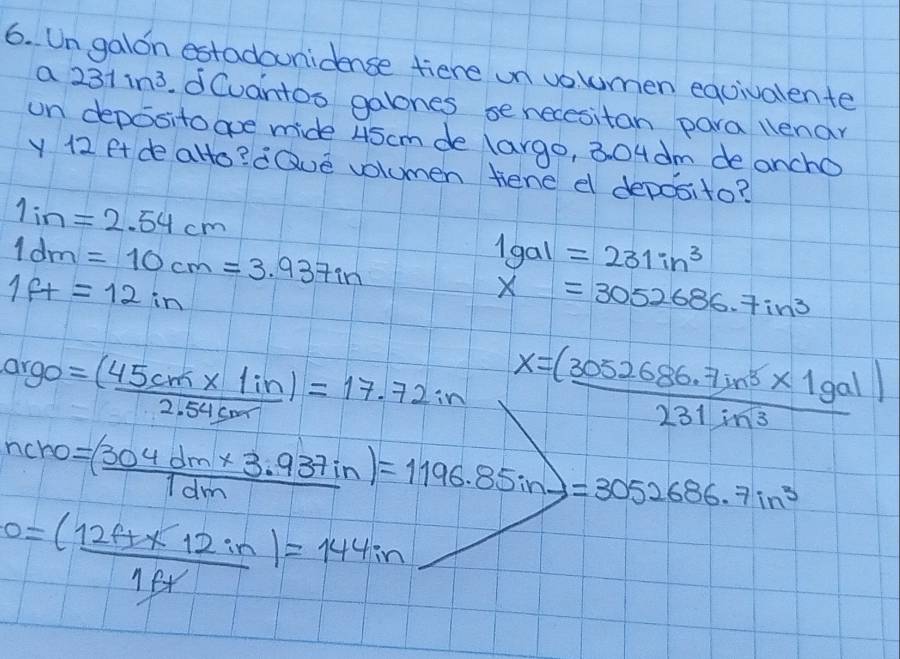 6. Un galón estadounidense tiene un volumen equivalente
a 231 in³. ¿Cuántos galones se necesitan para llenar
un depósito que mide 45cm de largo, 3.04 dm de ancho
y 12 ft de alto? ¿Qué volumen tiene el depósito?
1in = 2.54 cm
1dm = 10 cm = 3.937in
1ft = 12 in
1gal = 231in³
x = 3052686.7in³
argo = (45cm x 1in) = 17.72 in
2.54cm
x = (3052686.7in³ x 1gal)
231 in³
ncho = (304 dm x 3.937in) = 1196.85in
1dm
= 3052686.7in³
o = (12ft x 12in) = 144in
1ft